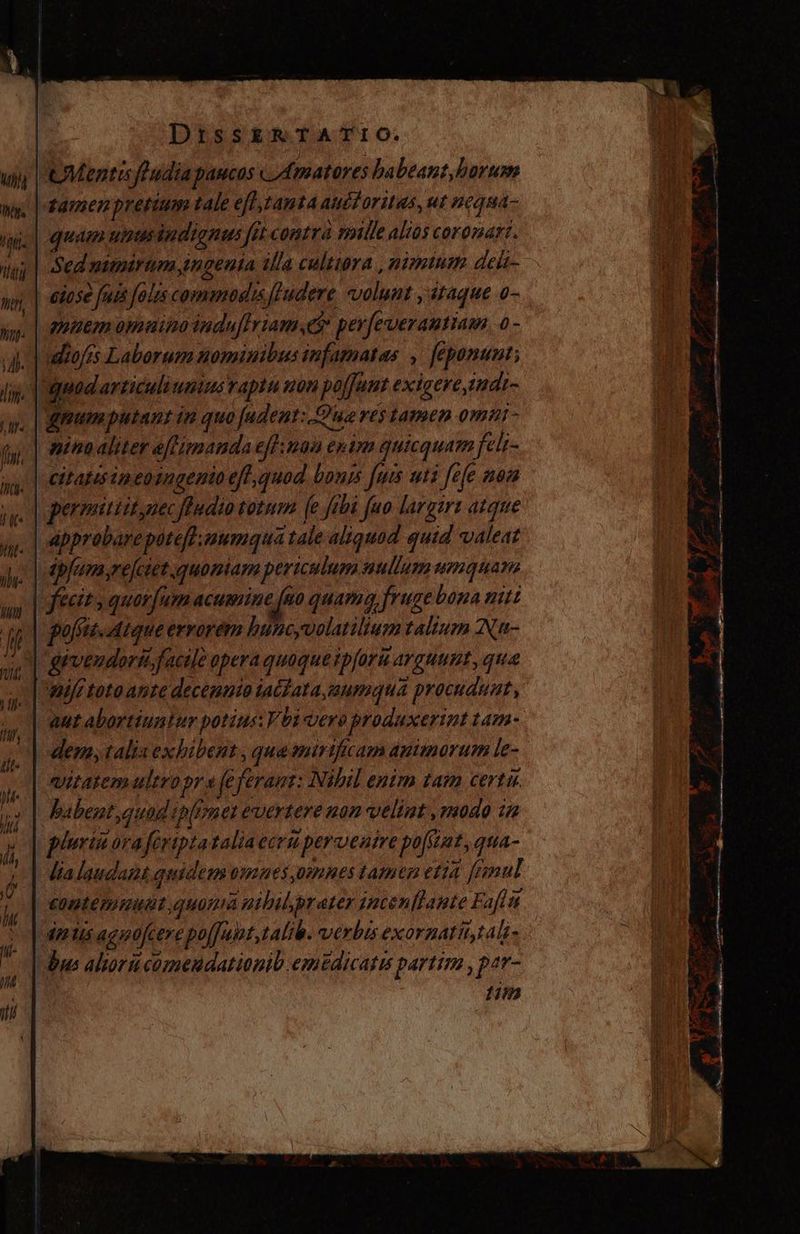 DISSERTATIO.
Mentis ſtudia paucos Amatores habeant, horum
tamen pretium tale eſt, tanta auctoritas, ut nequa-
quam unus indignus ſit contra mille alios coronari.
Sed nimirum, ingenia illa cultiora, nimium deli-
ciose ſuis ſolis commodis ſtudere volunt, itaque o-
mnem omnino induſtriam, & perſeverantiam o-
dioſis Laborum nominibus infamatas, ſeponunt;
quod articuli unius raptu non poſſunt exigere, indi-
gnum putant in quo ſudent: Quæ res tamen omni-
nino aliter æſtimanda eſt; non enim quicquam feli-
citatis in eo ingenio eſt, quod bonis ſuis uti ſeſe non
permittit, nec ſtudio totum ſe ſibi ſuo largiri atque
approbare poteſt; numquā tale aliquod quid valeat
ipſum, reſciet, quoniam periculum nullum umquam
fecit, quorſum acumine ſuo quamq, fruge bona niti
poſsit. Atque errorem hunc, volatilium talium Nu-
givendorū, facile opera quoque ipſorū arguunt, quæ
niſi toto ante decennio iactata, numquā procudunt,
aut abortiuntur potius: Vbi vero produxerint tam-
dem, talia exhibent, quæ mirificam animorum le-
vitatem ultro præ ſe ferant: Nihil enim tam certū
habent, quod ipſimet evertere non velint, modo in
pluriū ora ſcripta talia eorū pervenire poſsint, qua-
lia laudant quidem omnes, omnes tamen etiā ſimul
contemnunt, quoniā nihil, præter incenſtante Faſtū
in iis agnoſcere poſſunt, talib. verbis exornatū, tali-
bus aliorū cōmendationib. emēdicatis partim, par-
tim